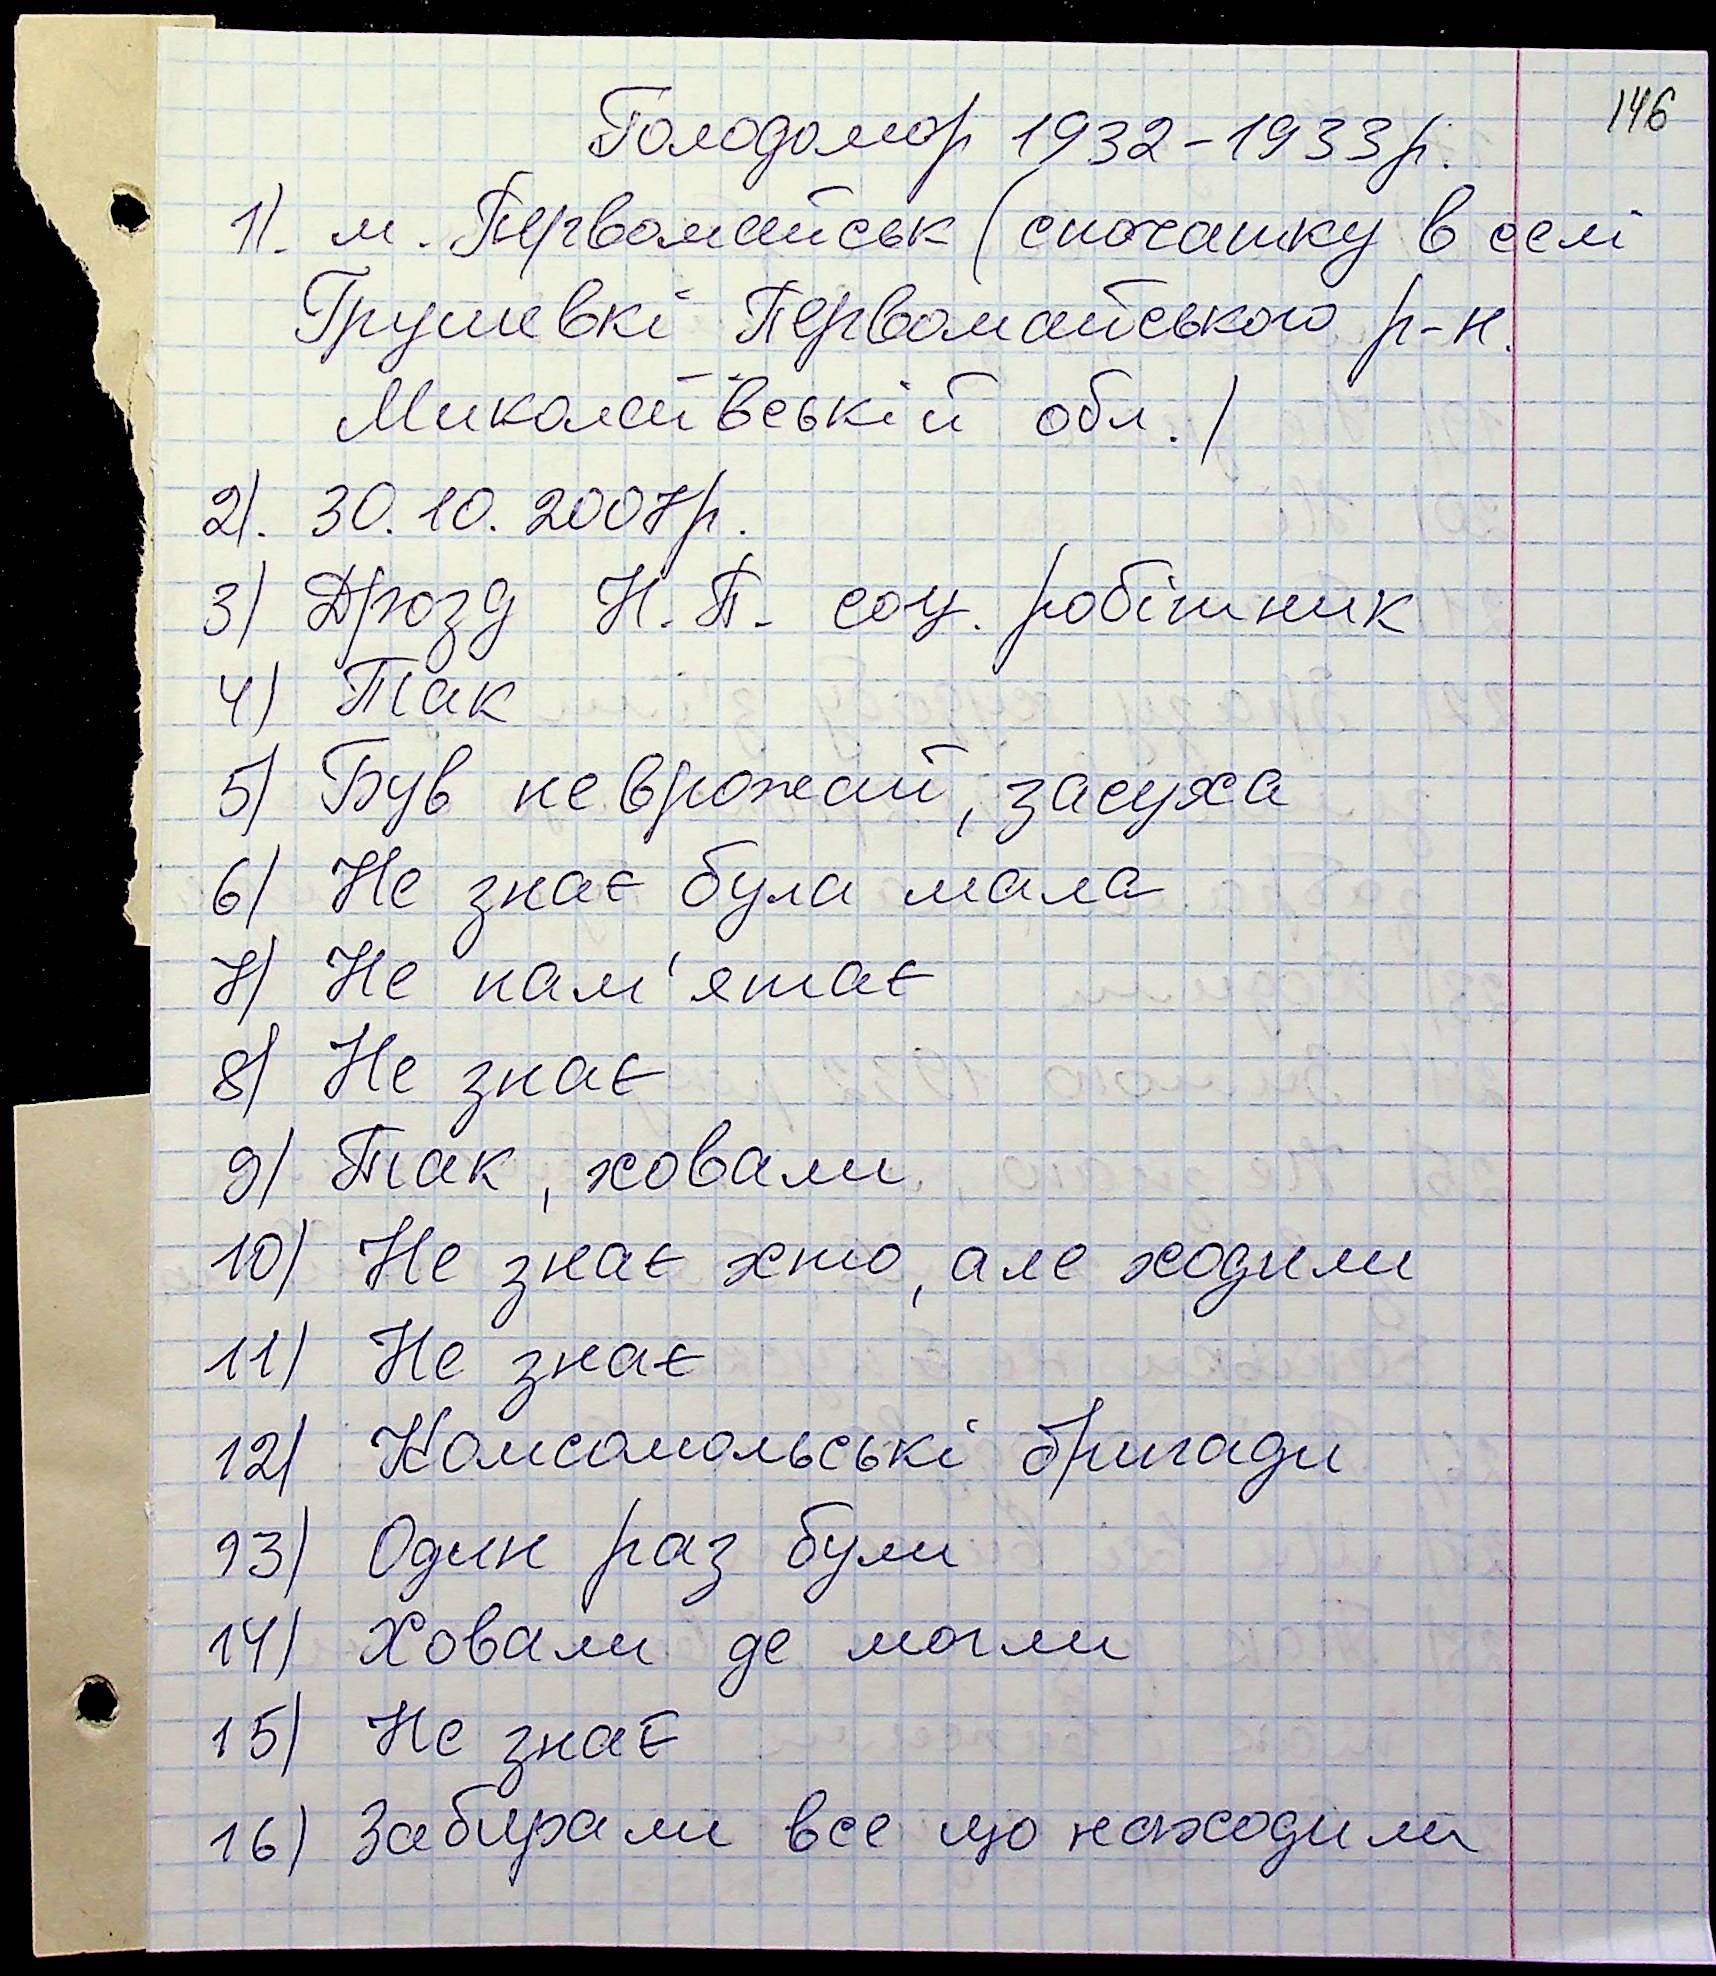 146
Голодомор 1932-1933р.
1). м. Первомайськ (спочатку в селі
Грушевкі Первомайського р-н.
Миколаївській обл.)
2). 30.10.2007р.
3) Дрозд Н.П. соц. робітник
4) Так
5) Був неврожай, засуха
6) Не знає була мала
7) Не пам'ятає
8) Не знає
9) Так, ховали
10) Не знає хто, але ходили
11) Не знає
12) Комсомольські бригади
13) Один раз були
14) Ховали де могли
15) Не знає
16) Забирали все що находили